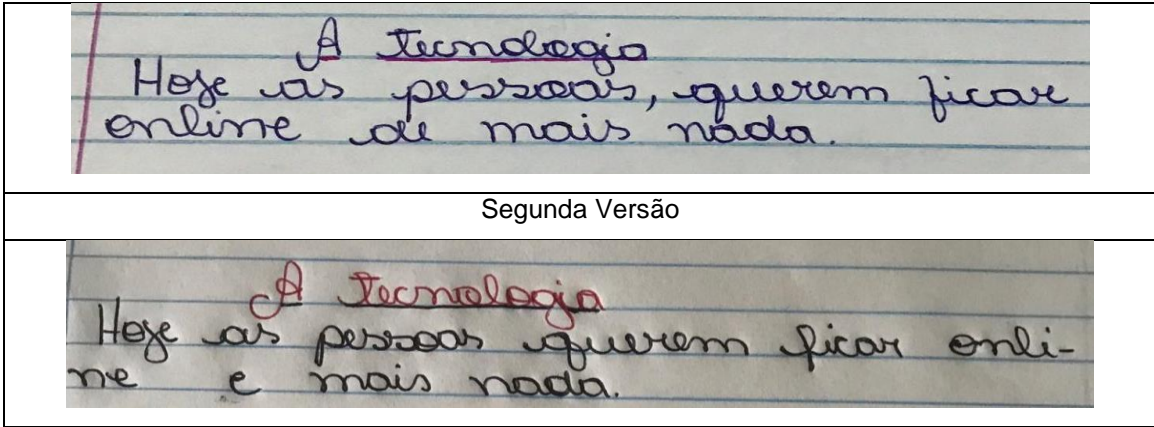 A Tecnologia
Hoje as pessoas, querem ficar
online de mais nada.
Segunda Versão
A Tecnologia
Hoje as pessoas querem ficar onli-
ne e mais nada.